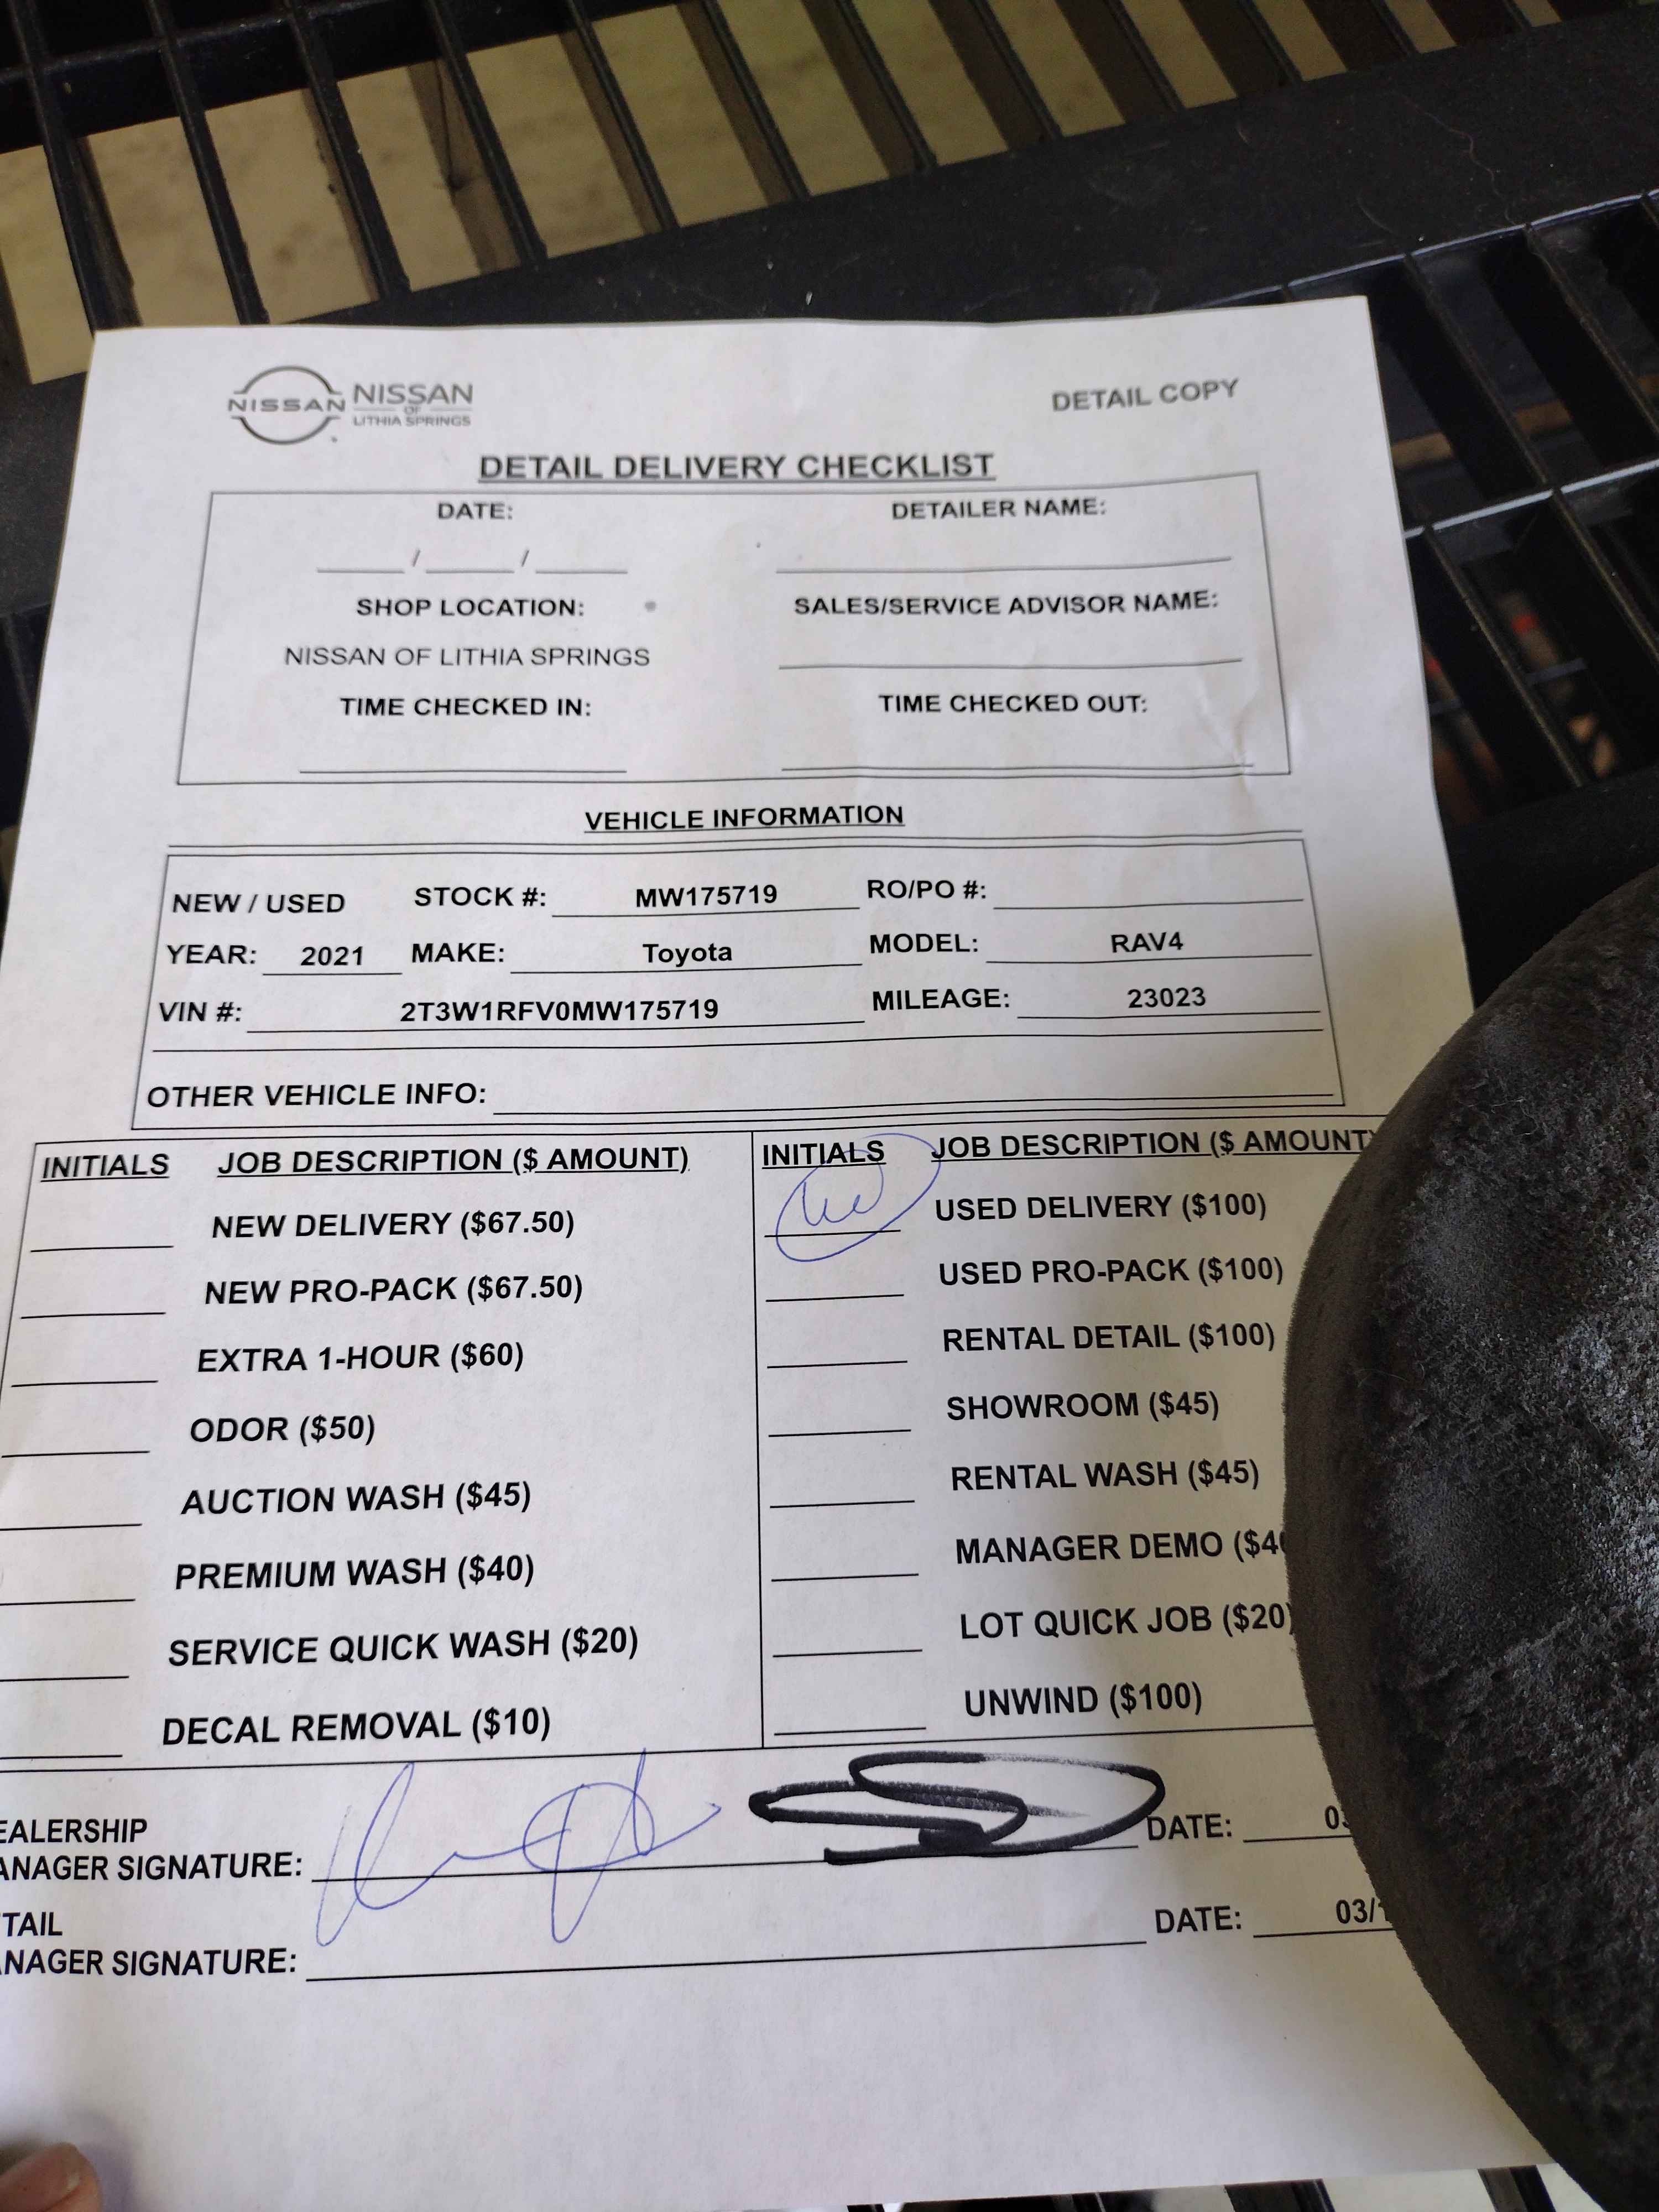 NISSAN NISSAN
OF
LITHIA SPRINGS
DETAIL COPY
DETAIL DELIVERY CHECKLIST
DATE: DETAILER NAME:
/ /
SHOP LOCATION: SALES/SERVICE ADVISOR NAME:
NISSAN OF LITHIA SPRINGS
TIME CHECKED IN: TIME CHECKED OUT:
VEHICLE INFORMATION
NEW / USED STOCK #: MW175719 RO/PO #:
YEAR: 2021 MAKE: Toyota MODEL: RAV4
VIN #: 2T3W1RFV0MW175719 MILEAGE: 23023
OTHER VEHICLE INFO:
INITIALS JOB DESCRIPTION ($ AMOUNT)
NEW DELIVERY ($67.50)
NEW PRO-PACK ($67.50)
EXTRA 1-HOUR ($60)
ODOR ($50)
AUCTION WASH ($45)
PREMIUM WASH ($40)
SERVICE QUICK WASH ($20)
DECAL REMOVAL ($10)
INITIALS JOB DESCRIPTION ($ AMOUNT)
USED DELIVERY ($100)
USED PRO-PACK ($100)
RENTAL DETAIL ($100)
SHOWROOM ($45)
RENTAL WASH ($45)
MANAGER DEMO ($4
LOT QUICK JOB ($20)
UNWIND ($100)
EALERSHIP
ANAGER SIGNATURE: DATE: 03
TAIL
NAGER SIGNATURE: DATE: 03/1